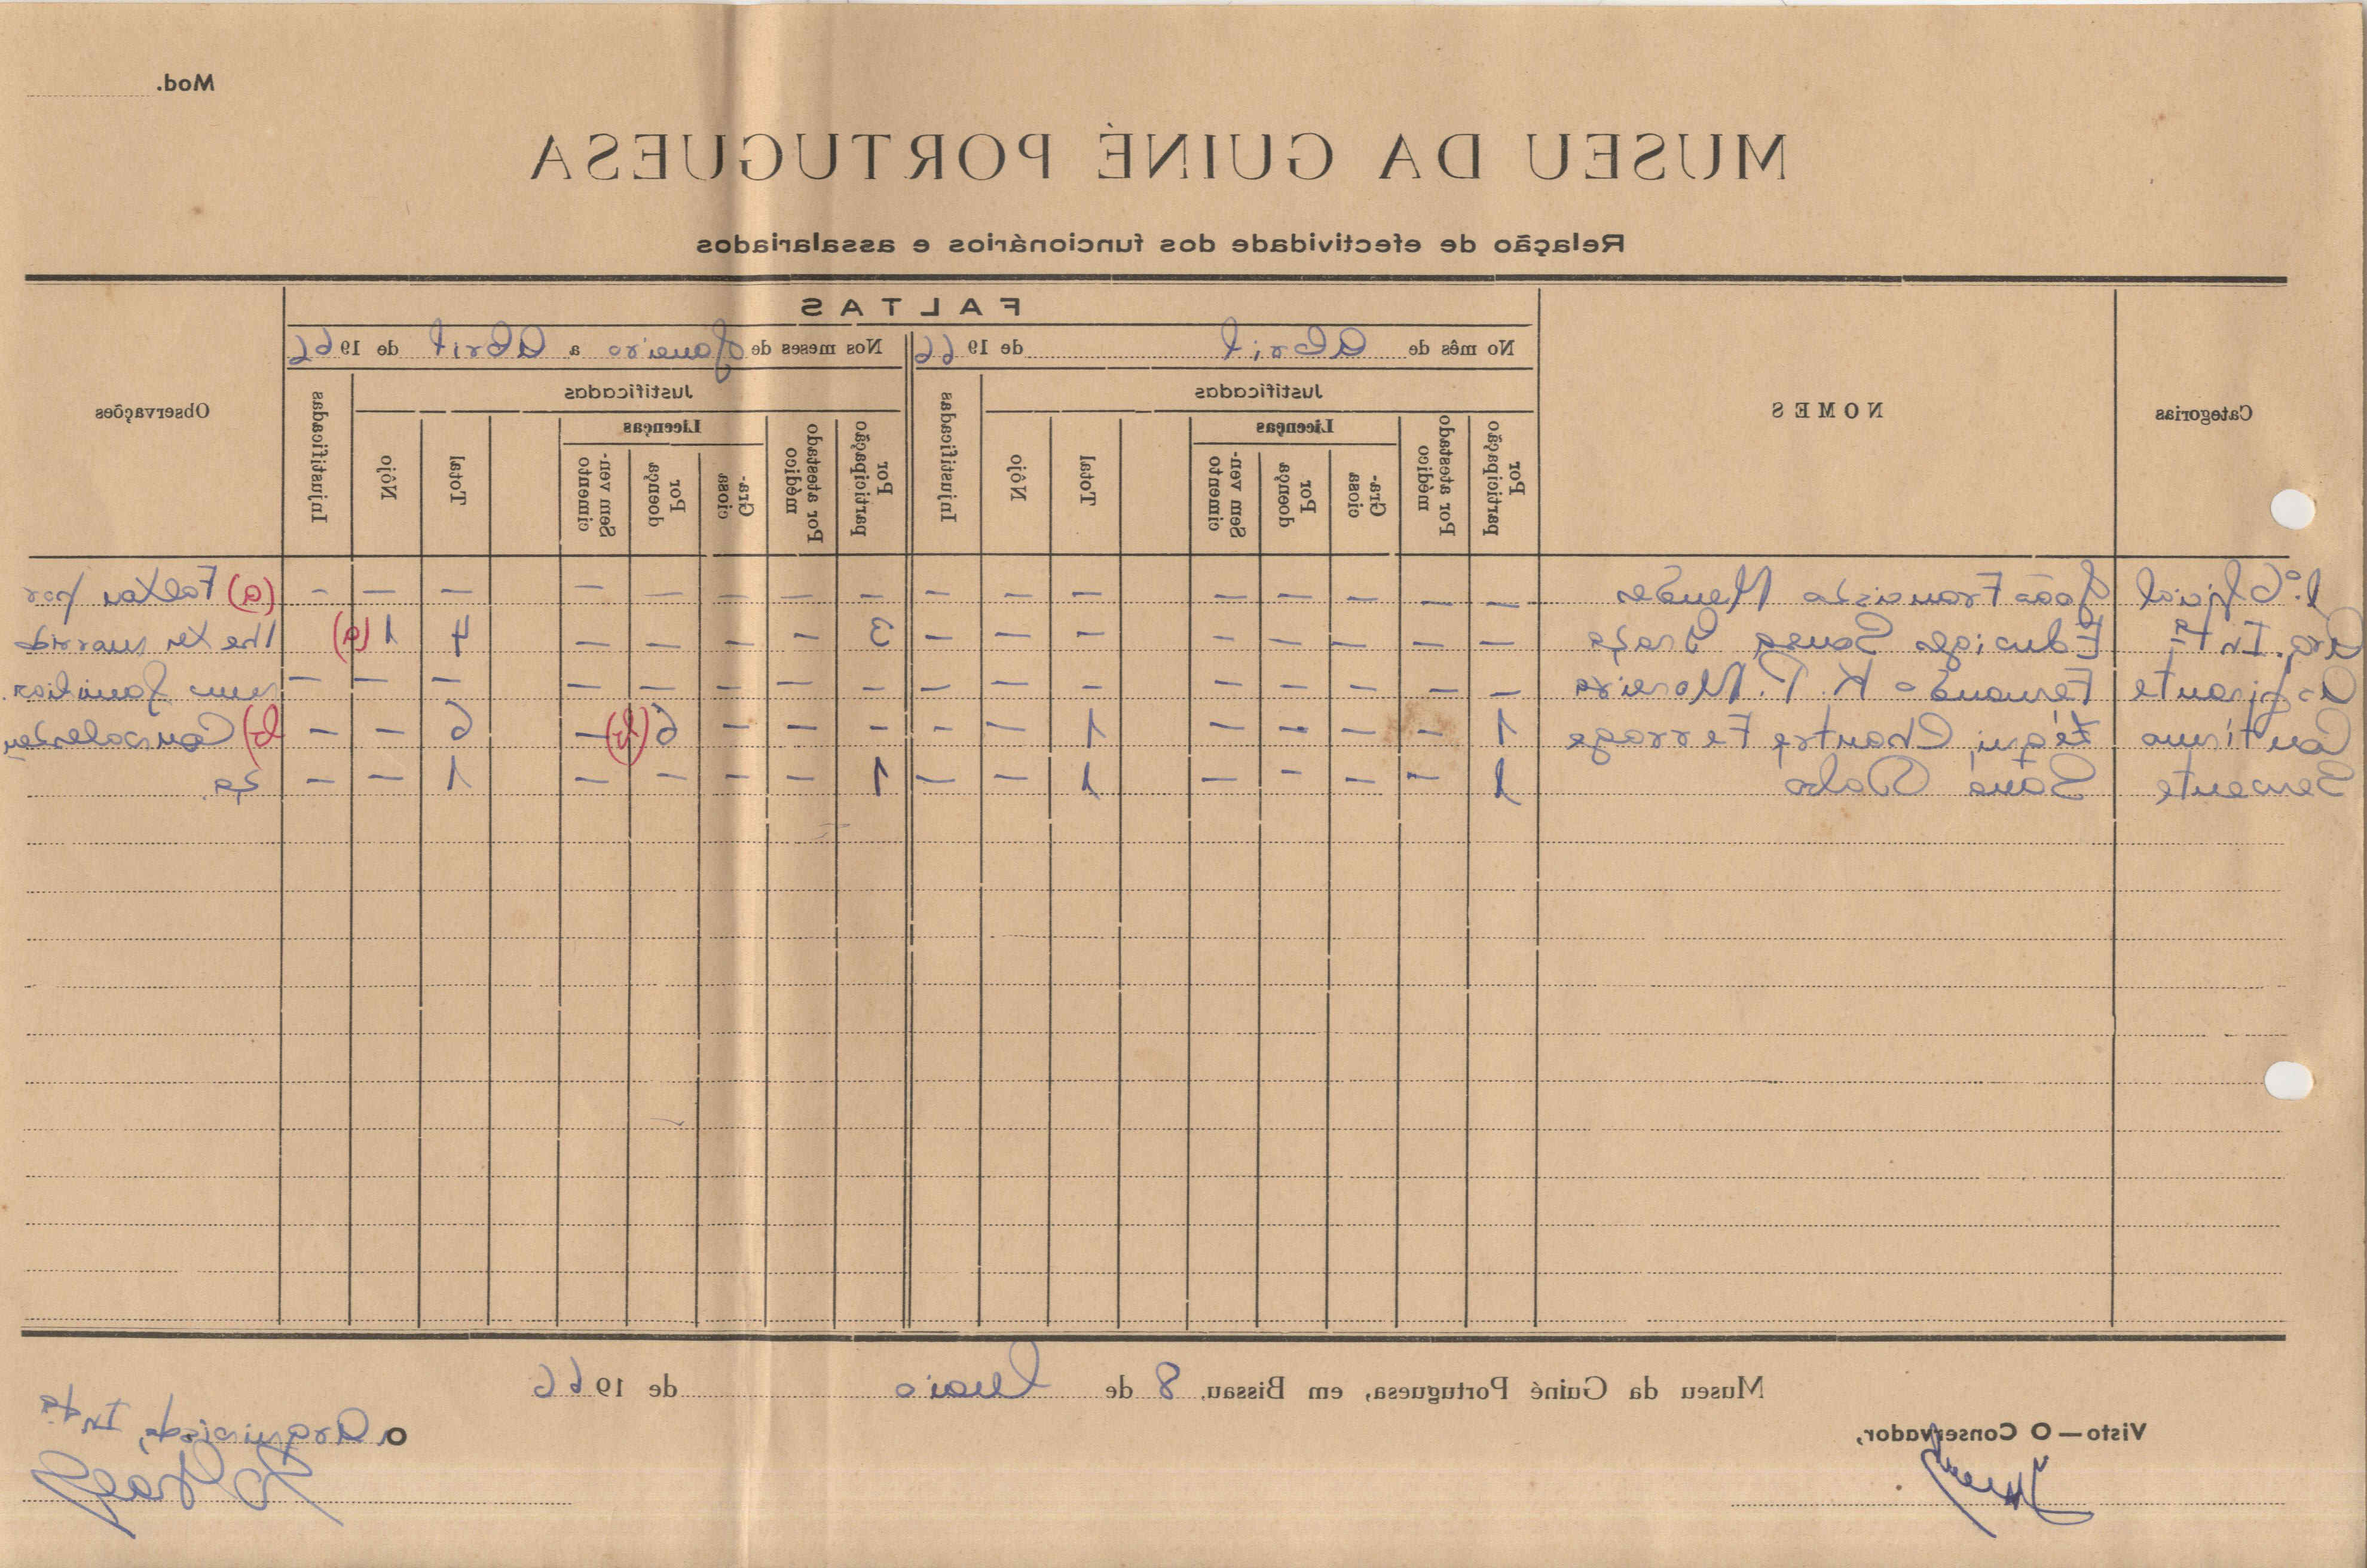 Mod.
MUSEU DA GUINÉ PORTUGUESA
Relação de efectividade dos funcionários e assalariados
Categorias
NOMES
FALTAS
Observações
No mês de Abril de 1966
Nos meses de Janeiro a Abril de 1966
Justificadas
Injustificadas
Justificadas
Injustificadas
Por participação
Por atestado médico
Licenças
Graciosa
Por doença
Sem vencimento
Total
Nôjo
Por participação
Por atestado médico
Licenças
Graciosa
Por doença
Sem vencimento
Total
Nôjo
1.º Oficial João Francisco Mendes — — — — — — — — — — — — — — — — (a) Faltou por
Arq. Intª Eduviges Sousa Graça — — — — — — — — 3 — — — — 4 1 (a) — lhe ter morrido
Aspirante Fernando K. P. Moreira — — — — — — — — — — — — — — — — um familiar.
Contínua Chantre Ferrage 1 — — — — 1 — — — — — 6 (b) — 6 — — b) Convalescen
Servente Saná Balde 1 — — — — 1 — — 1 — — — — 1 — — ça.
Museu da Guiné Portuguesa, em Bissau, 8 de Maio de 1966
Visto — O Conservador,
O Arquivista, Intª